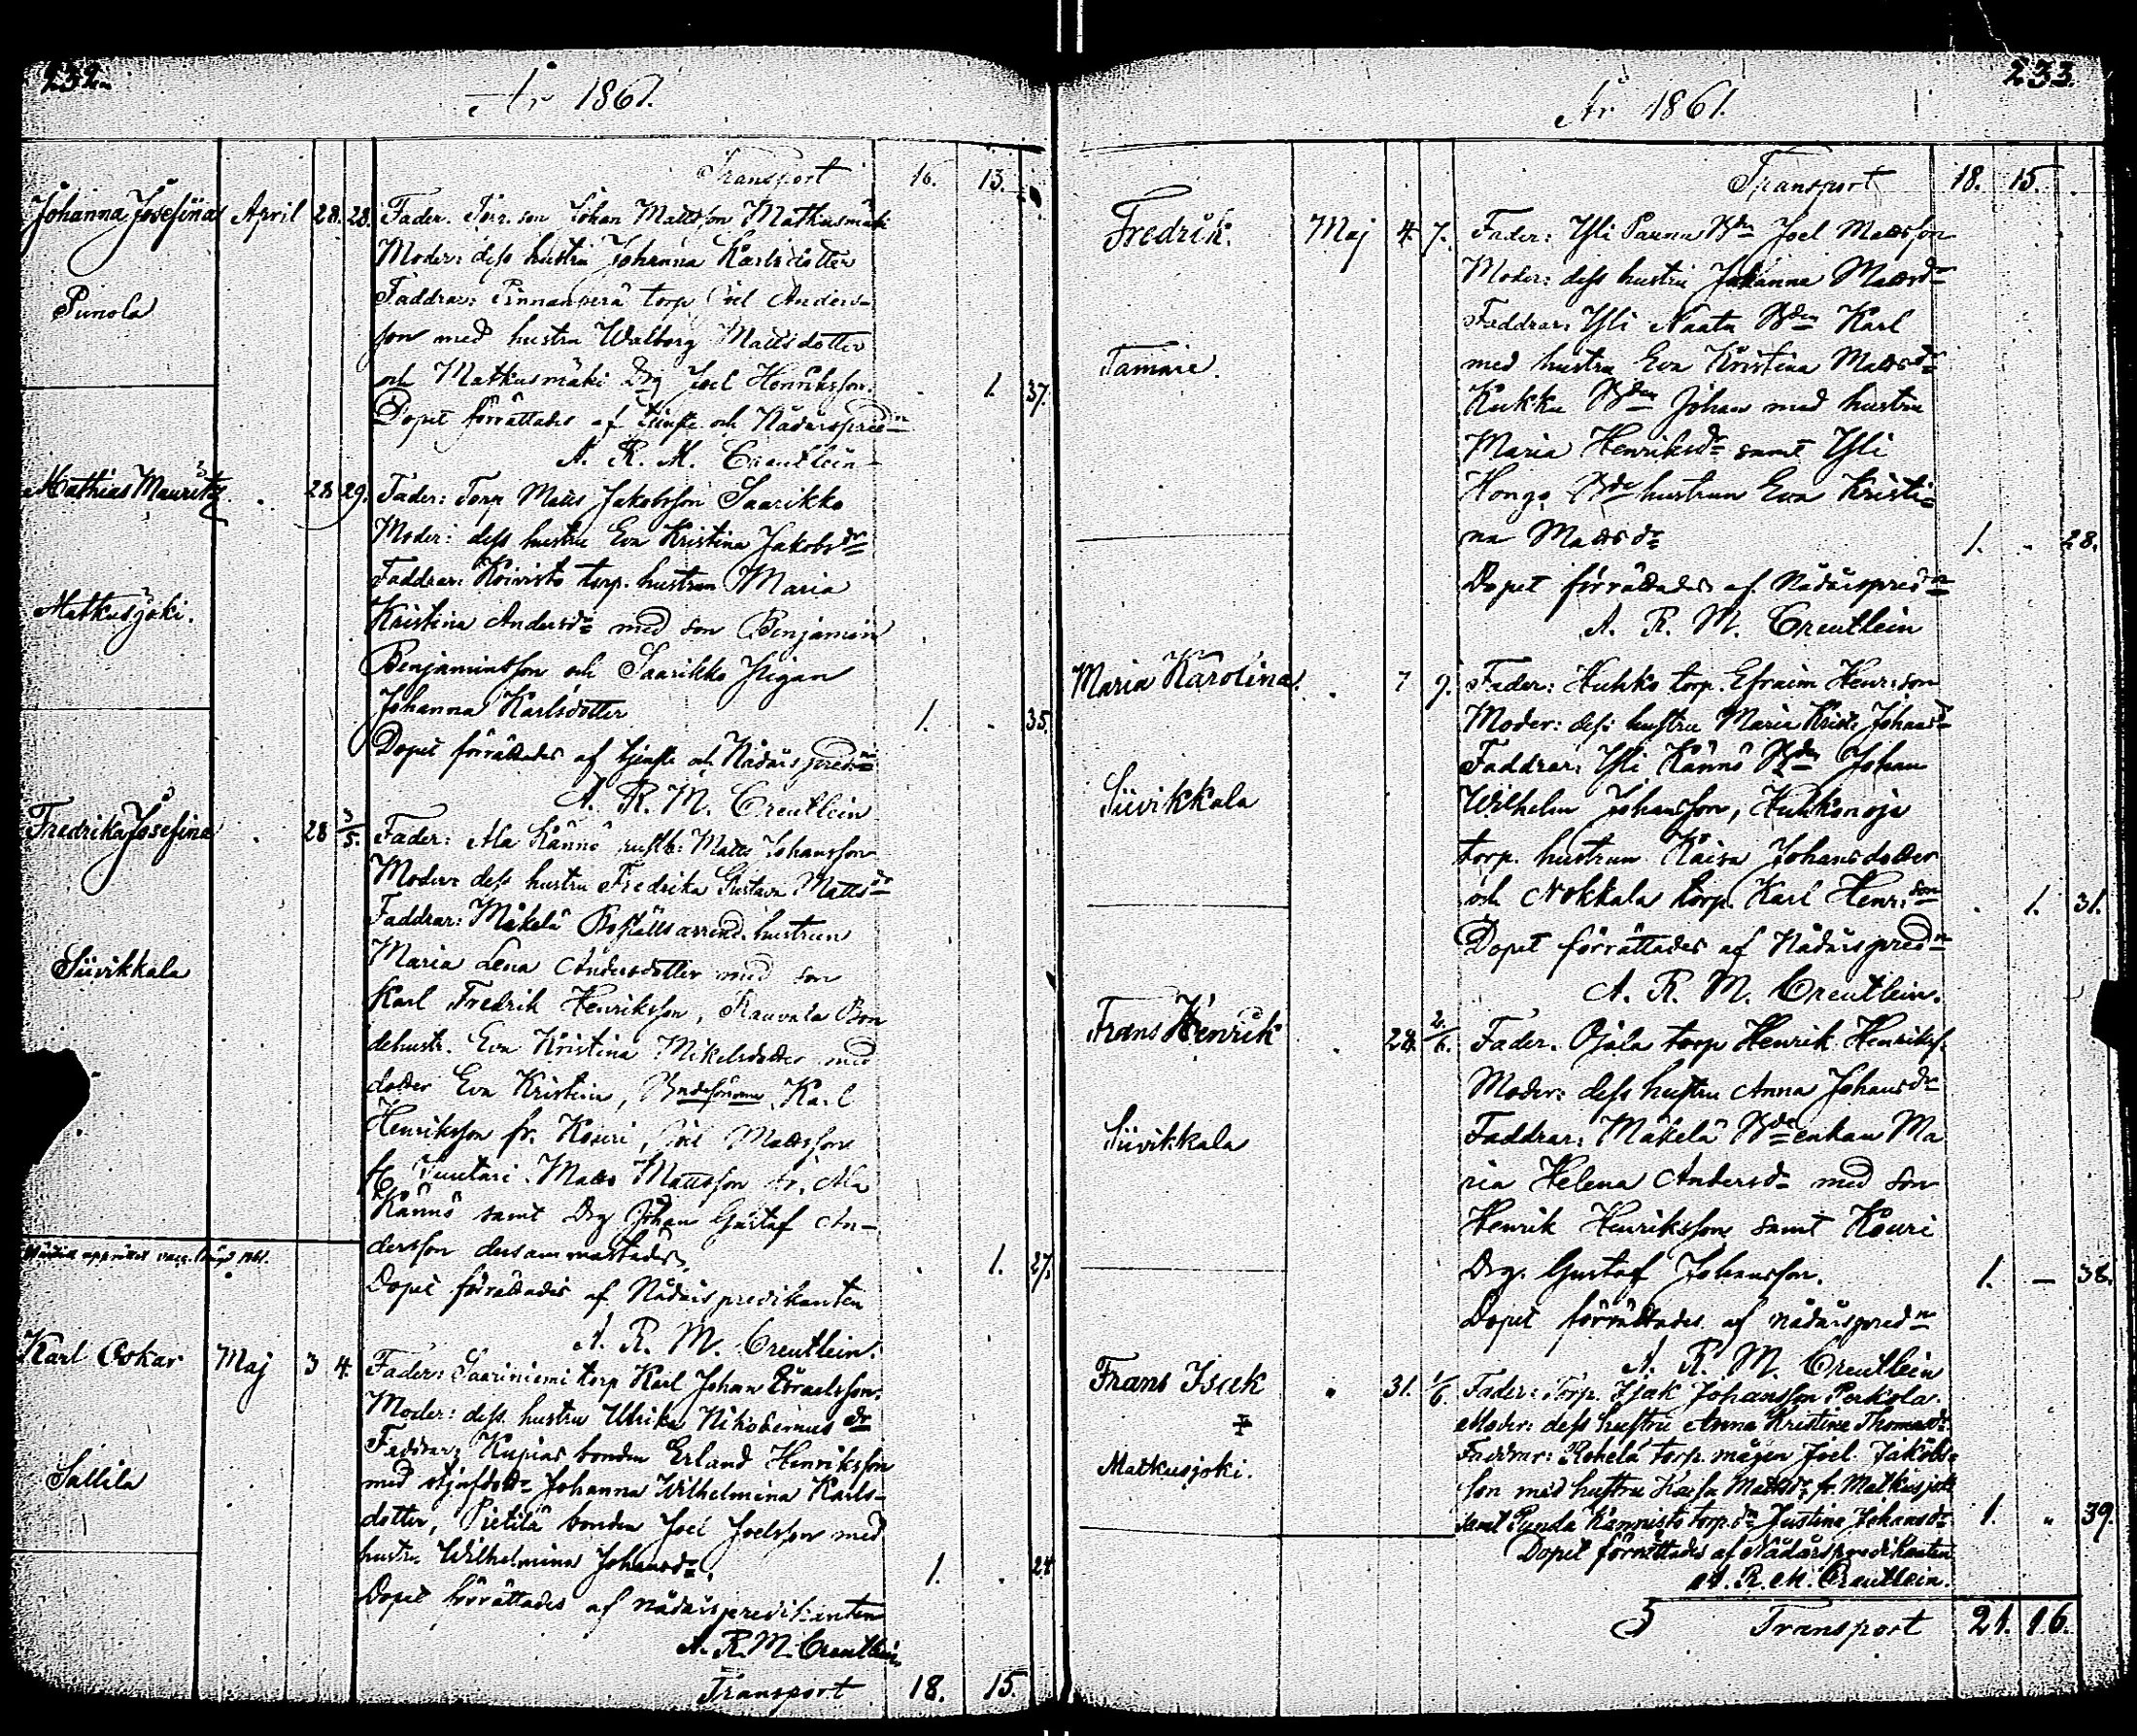 232.
År 1861.
Transport 16. 13.
Johanna Josefina April 28. 28. Fader. Torp. son Johan Mattsson Matkusmäki
Moder: dess hustru Johanna Karlsdotter
Punola
Faddrar: Pinnanperä torp. Joel Anders-
son med hustru Walborg Mattsdotter
och Matkusmäki Drg Joel Henriksson. 1. 37.
Dopet förrättades af tjenstg. och Nådårspredn
A. R. M. Creutlein
Mathias Mauritz 28. 29. Fader: Torp. Matts Jakobsson Saarikko
Moder: dess hustru Eva Kristina Jakobsdr
Matkusjoki.
Faddrar: Koivisto torp. hustrun Maria
Kristina Andersdr med son Benjamin
Benjaminsson och Saarikko Pigan
Johanna Karlsdotter 1. 35.
Dopet förrättades af tjenstg och Nådårspredn
A. R. M. Creutlein
Fredrika Josefina 28 3/5. Fader: Ala Kännö rusth: Matts Johansson
Moder: dess hustru Fredrika Gustava Mattsdr
Siivikkala
Faddrar: Mäkelä Boställs arrend. hustrun
Maria Lena Andersdotter med son
Karl Fredrik Henriksson, Rauvala Bon
dehustr. Eva Kristina Mikelsdotter med
dotter Eva Kristina, Bndesönerne, Karl
Henriksson fr. Kouri, Joel Mattsson
fr. Vuntari. Matts Mattsson fr. Ala
Kännö samt Drg Johan Gustaf An-
dersson dersammastädes, 1. 27.
Dopet förrättades af Nådårspredikanten
A. R. M. Creutlein.
Karl Oskar Maj 3 4. Fader: Saariniemi torp Karl Johan Israelsson.
Moder: dess hustru Ulrika Nikodemus dr
Sallila
Faddrar: Kupias bonden Erland Henriksson
med styfdottr Johanna Wilhelmina Karls-
dotter, Pietilä bonden Joel Joelsson med
hustru Wilhelmina Johansdr. 1. 24
Dopet förrättades af nådårspredikanten
A. R. M. Creutlein
Transport 18. 15.
233.
År 1861.
Transport 18. 15.
Fredrik. Maj 4. 7. Fader: Yli Pauna Bdn Joel Mattsson
Moder: dess hustru Johanna Mattsdr
Faddrar: Yli Naata Bden Karl
Tammie.
med hustru Eva Kristina Mattsdr
Kukku Bden Johan med hustru
Maria Henriksdr samt Yli
Hongo Bde hustrun Eva Kristi-
na Mattsdr 1. 28.
Dopet förrättades af Nådårspredn
A. R. M. Creutlein
Maria Karolina. 7 9. Fader: Huhko torp. Efraim Henr:son
Moder: dess hustru Maria Krist. Johansdr
Faddrar: Yli Kännö Bden Johan
Siivikkala
Wilhelm Johansson, Huhkonoja
torp. hustrun Kaisa Johansdotter
och Nokkala torp. Karl Henr:son 1. 31.
Dopet förrättades af Nådårspredn
A. R. M. Creutlein.
Frans Henrik 24. 2/6. Fader. Ojala torp Henrik Henrikss.
Moder: dess hustru Anna Johansdr
Siivikkala
Faddrar: Mäkelä Bde enkan Ma
ria Helena Andersdr med son
Henrik Henriksson samt Kouri
Drg. Gustaf Johansson. 1. — 38.
Dopet förrättades af nådårspredn
A. R. M. Creutlein
Frans Isak 31. 1/6. Fader: Torp. Isak Johansson Perkola.
Moder: dess hustru Anna Kristina Thomasdr
Matkusjoki.
Faddrar: Rohelä torp. mågen Joel Jakobs-
son med hustru Kaisa Mattsdr fr. Matkusjoki
samt Punda Kannisto torp. dr Justina Johansdr 1. 39.
Dopet förrättades af Nådårspredikanten
A. R. M. Creutlein.
Transport 21. 16.